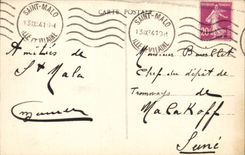 CARTE POSTALE
SAINT-MALO
ILLE ET VILAINE
SAINT-MALO
ILLE ET VILAINE
20
Amitiés de
St Malo
Monsieur
Chef du dépôt de
Tramways de
MALAKOFF
Seine